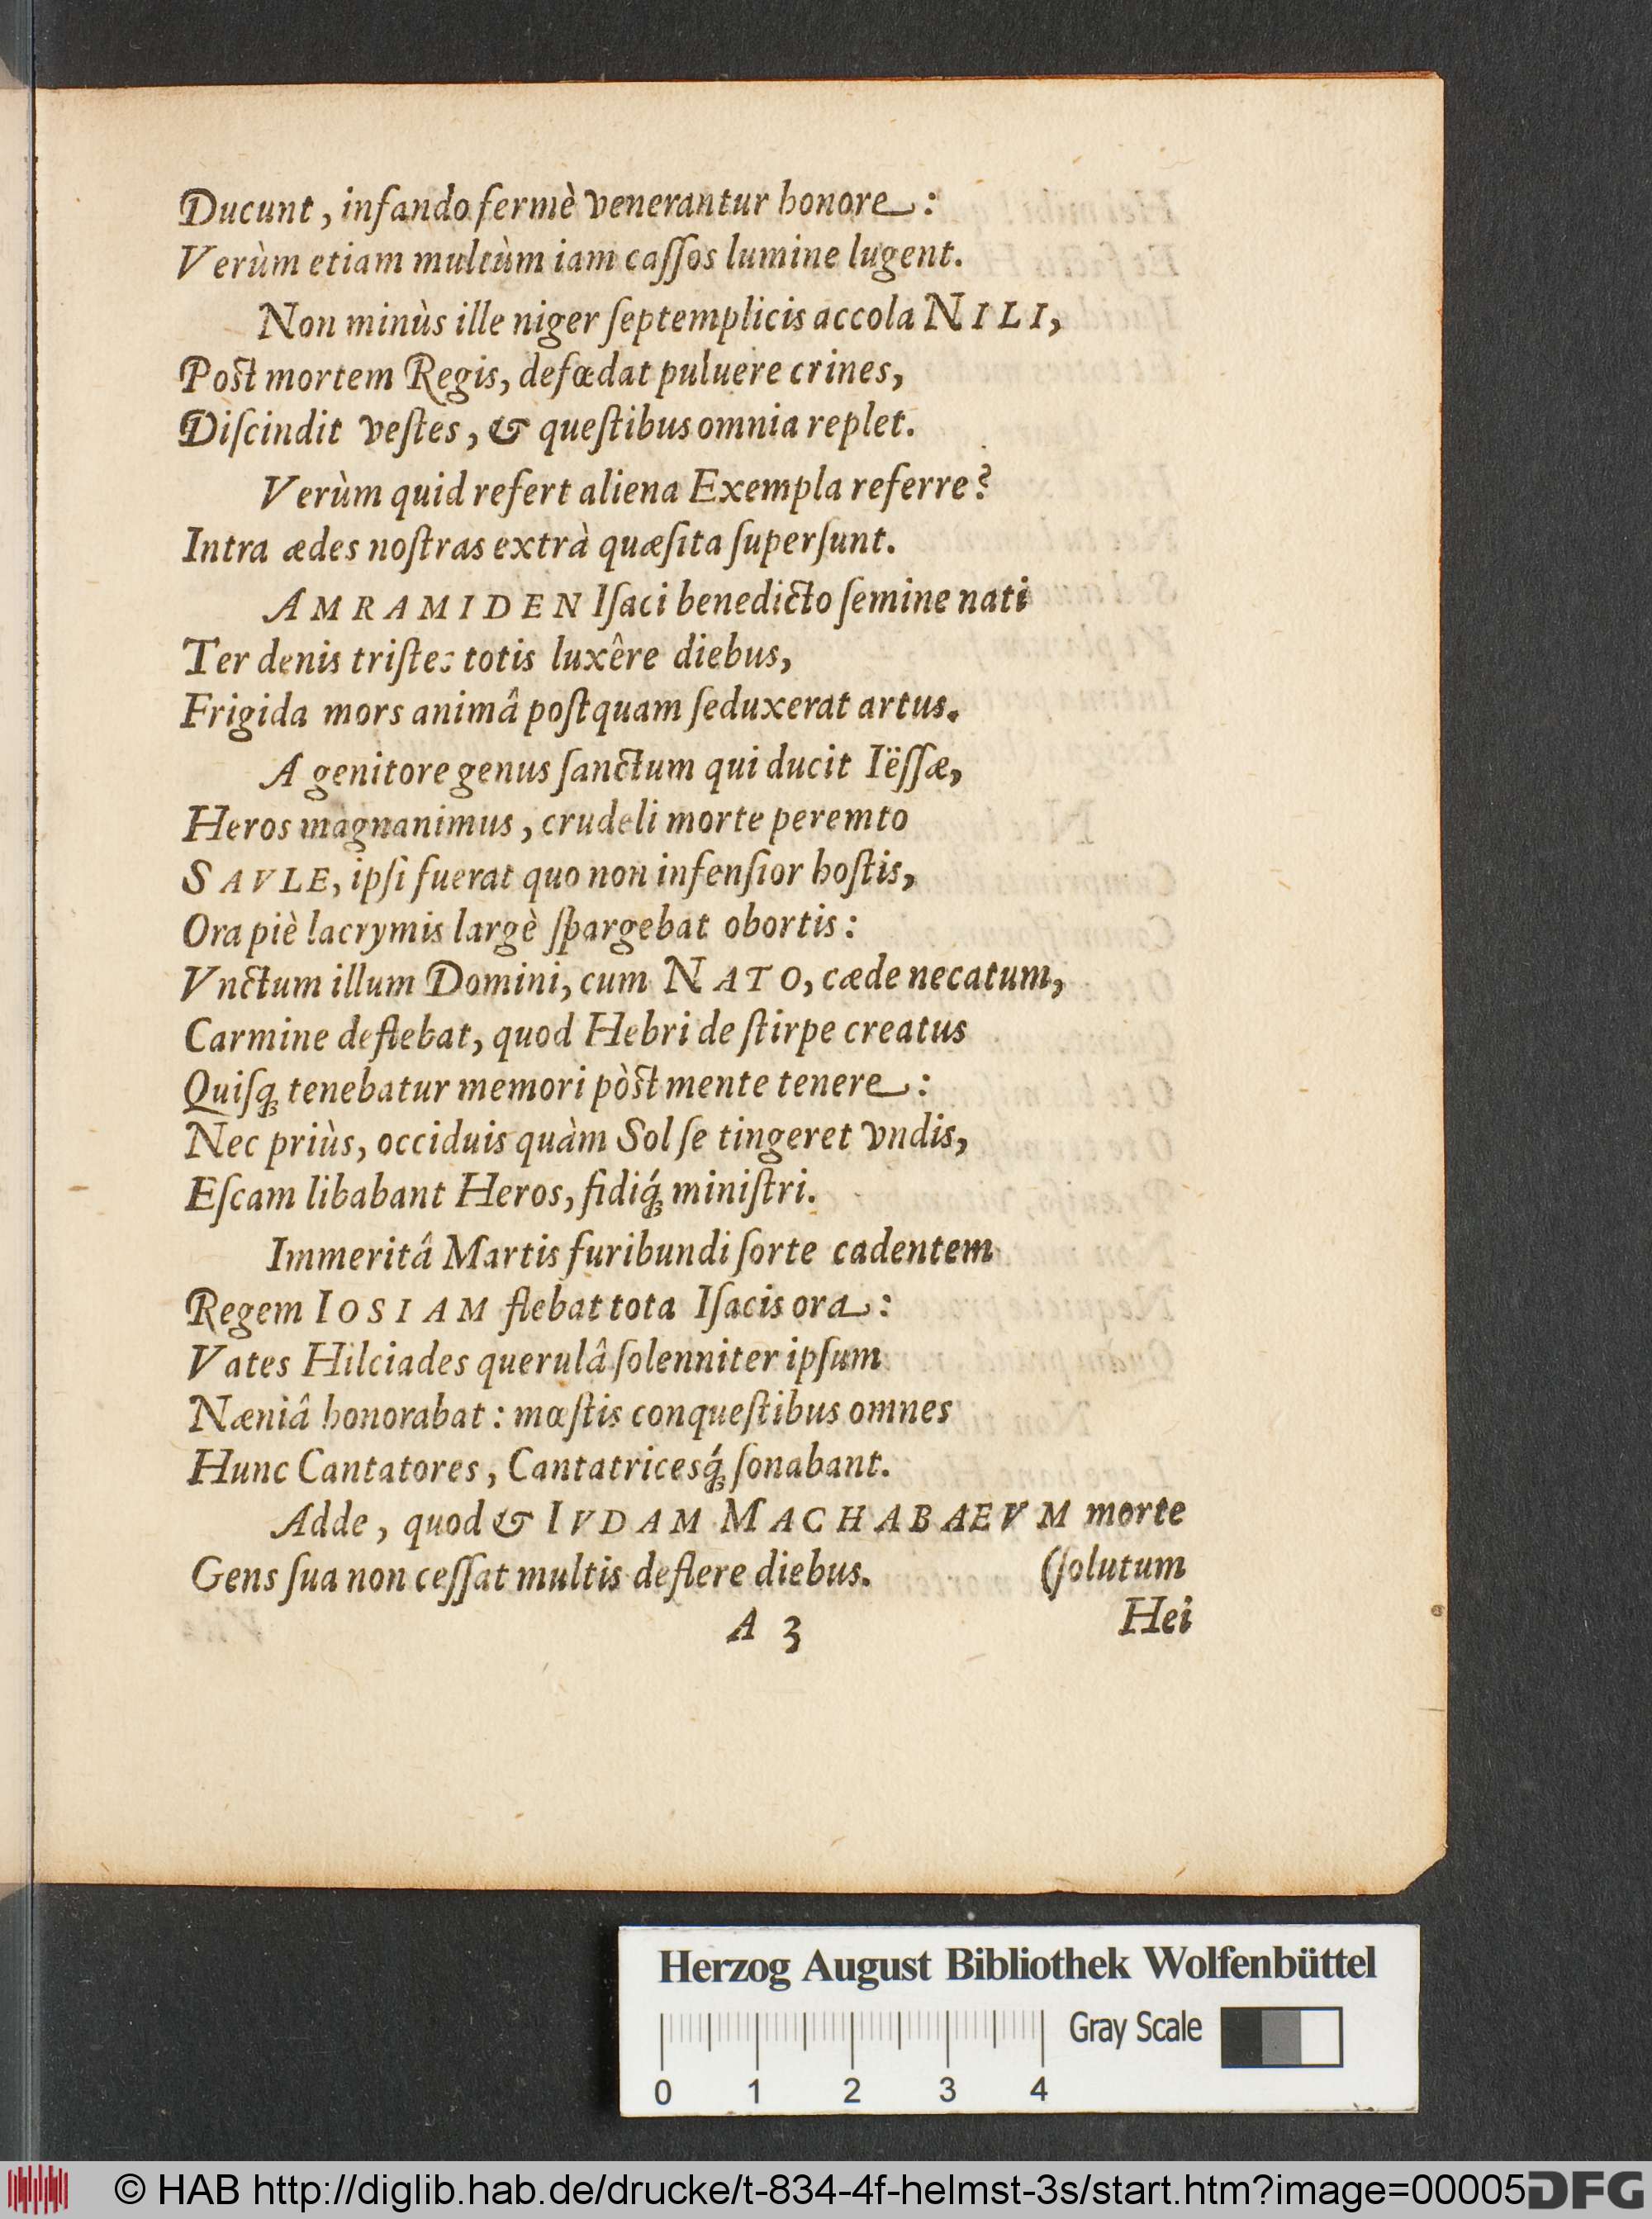 Ducunt, infando fermè venerantur honore:
Verùm etiam multùm iam caſſos lumine lugent.
Non minùs ille niger ſeptemplicis accola NILI,
Poſt mortem Regis, defœdat puluere crines,
Diſcindit veſtes, & queſtibus omnia replet.
Verùm quid refert aliena Exempla referre?
Intra ædes noſtras extrà quæſita ſuperſunt.
AMRAMIDEN Iſaci benedicto ſemine nati
Ter denis triſtes totis luxêre diebus,
Frigida mors animâ poſtquam ſeduxerat artus.
A genitore genus ſanctum qui ducit Iëſſæ,
Heros magnanimus, crudeli morte peremto
SAVLE, ipſi fuerat quo non infenſior hoſtis,
Ora piè lacrymis largè ſpargebat obortis:
Vnctum illum Domini, cum NATO, cæde necatum,
Carmine deflebat, quod Hebri de ſtirpe creatus
Quiſq́; tenebatur memori pòſt mente tenere:
Nec priùs, occiduis quàm Sol ſe tingeret vndis,
Eſcam libabant Heros, fidiq́; miniſtri.
Immeritâ Martis furibundi ſorte cadentem
Regem IOSIAM flebat tota Iſacis ora:
Vates Hilciades querulâ ſolenniter ipſum
Næniâ honorabat: mœſtis conqueſtibus omnes
Hunc Cantatores, Cantatricesq́; ſonabant.
Adde, quod & IVDAM MACHABAEVM morte
Gens ſua non ceſſat multis deflere diebus. (ſolutum
A 3 Hei
Herzog August Bibliothek Wolfenbüttel
Gray Scale
0 1 2 3 4
© HAB http://diglib.hab.de/drucke/t-834-4f-helmst-3s/start.htm?image=00005
DFG